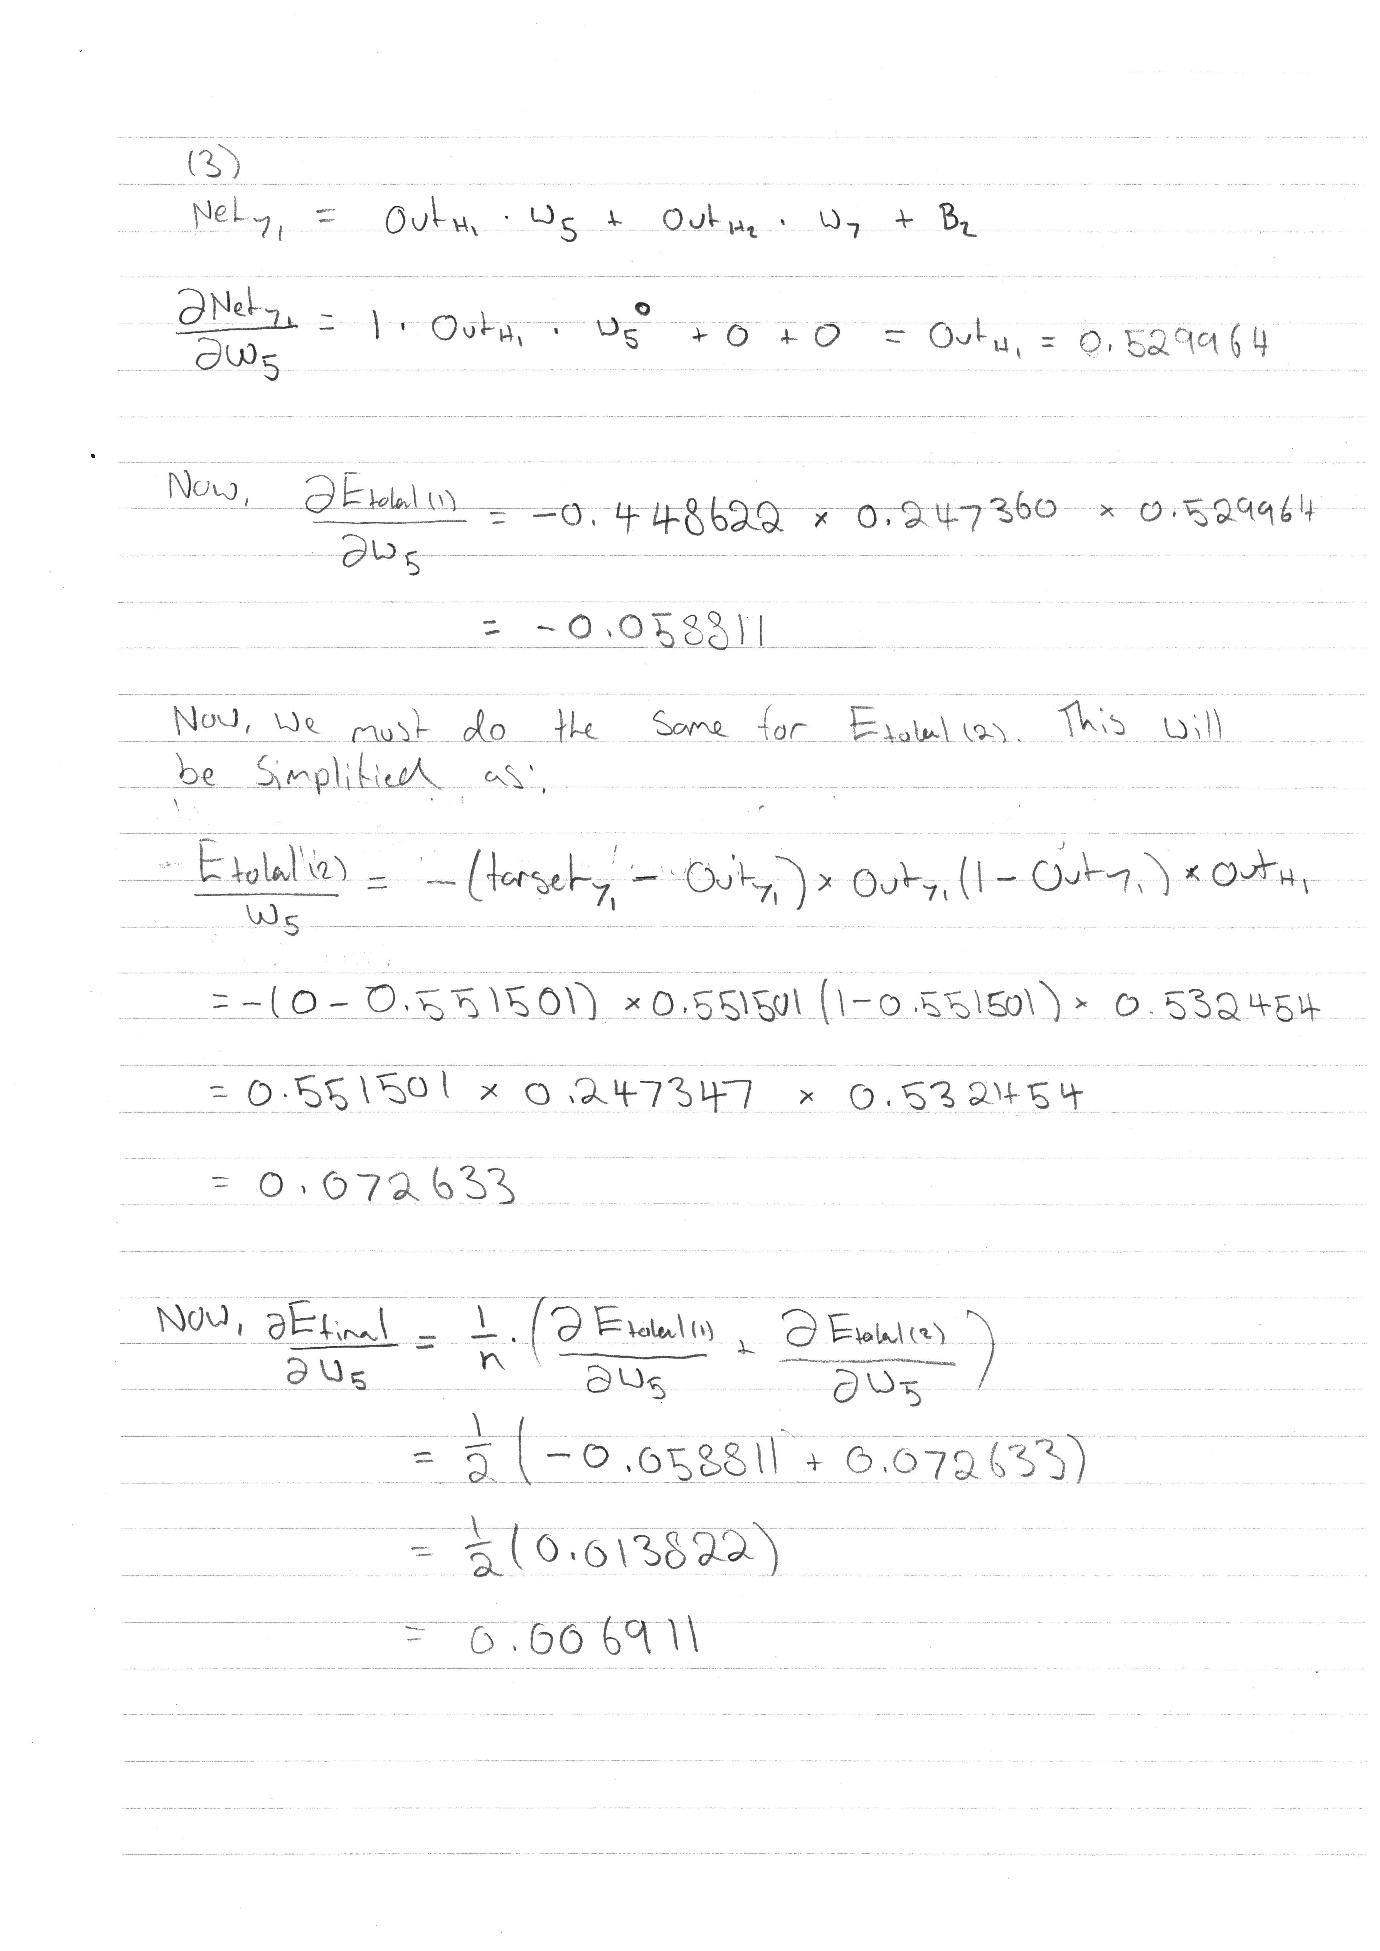 (3)
Net_y₁ = Out_H₁ . W₅ + Out_H₂ . W₇ + B₂
∂Net_y₁/∂W₅ = 1 . Out_H₁ . W₅⁰ + 0 + 0 = Out_H₁ = 0.529964
Now, ∂E_total(1)/∂W₅ = -0.448622 × 0.247360 × 0.529964
= -0.058811
Now, we must do the same for E_total(2). This will
be simplified as:
E_total(2)/W₅ = -(target_y₁ - Out_y₁) × Out_y₁(1 - Out_y₁) × Out_H₁
= -(0 - 0.551501) × 0.551501(1-0.551501) × 0.532454
= 0.551501 × 0.247347 × 0.532454
= 0.072633
Now, ∂E_final/∂W₅ = 1/n . (∂E_total(1)/∂W₅ + ∂E_total(2)/∂W₅)
= 1/2 (-0.058811 + 0.072633)
= 1/2 (0.013822)
= 0.006911